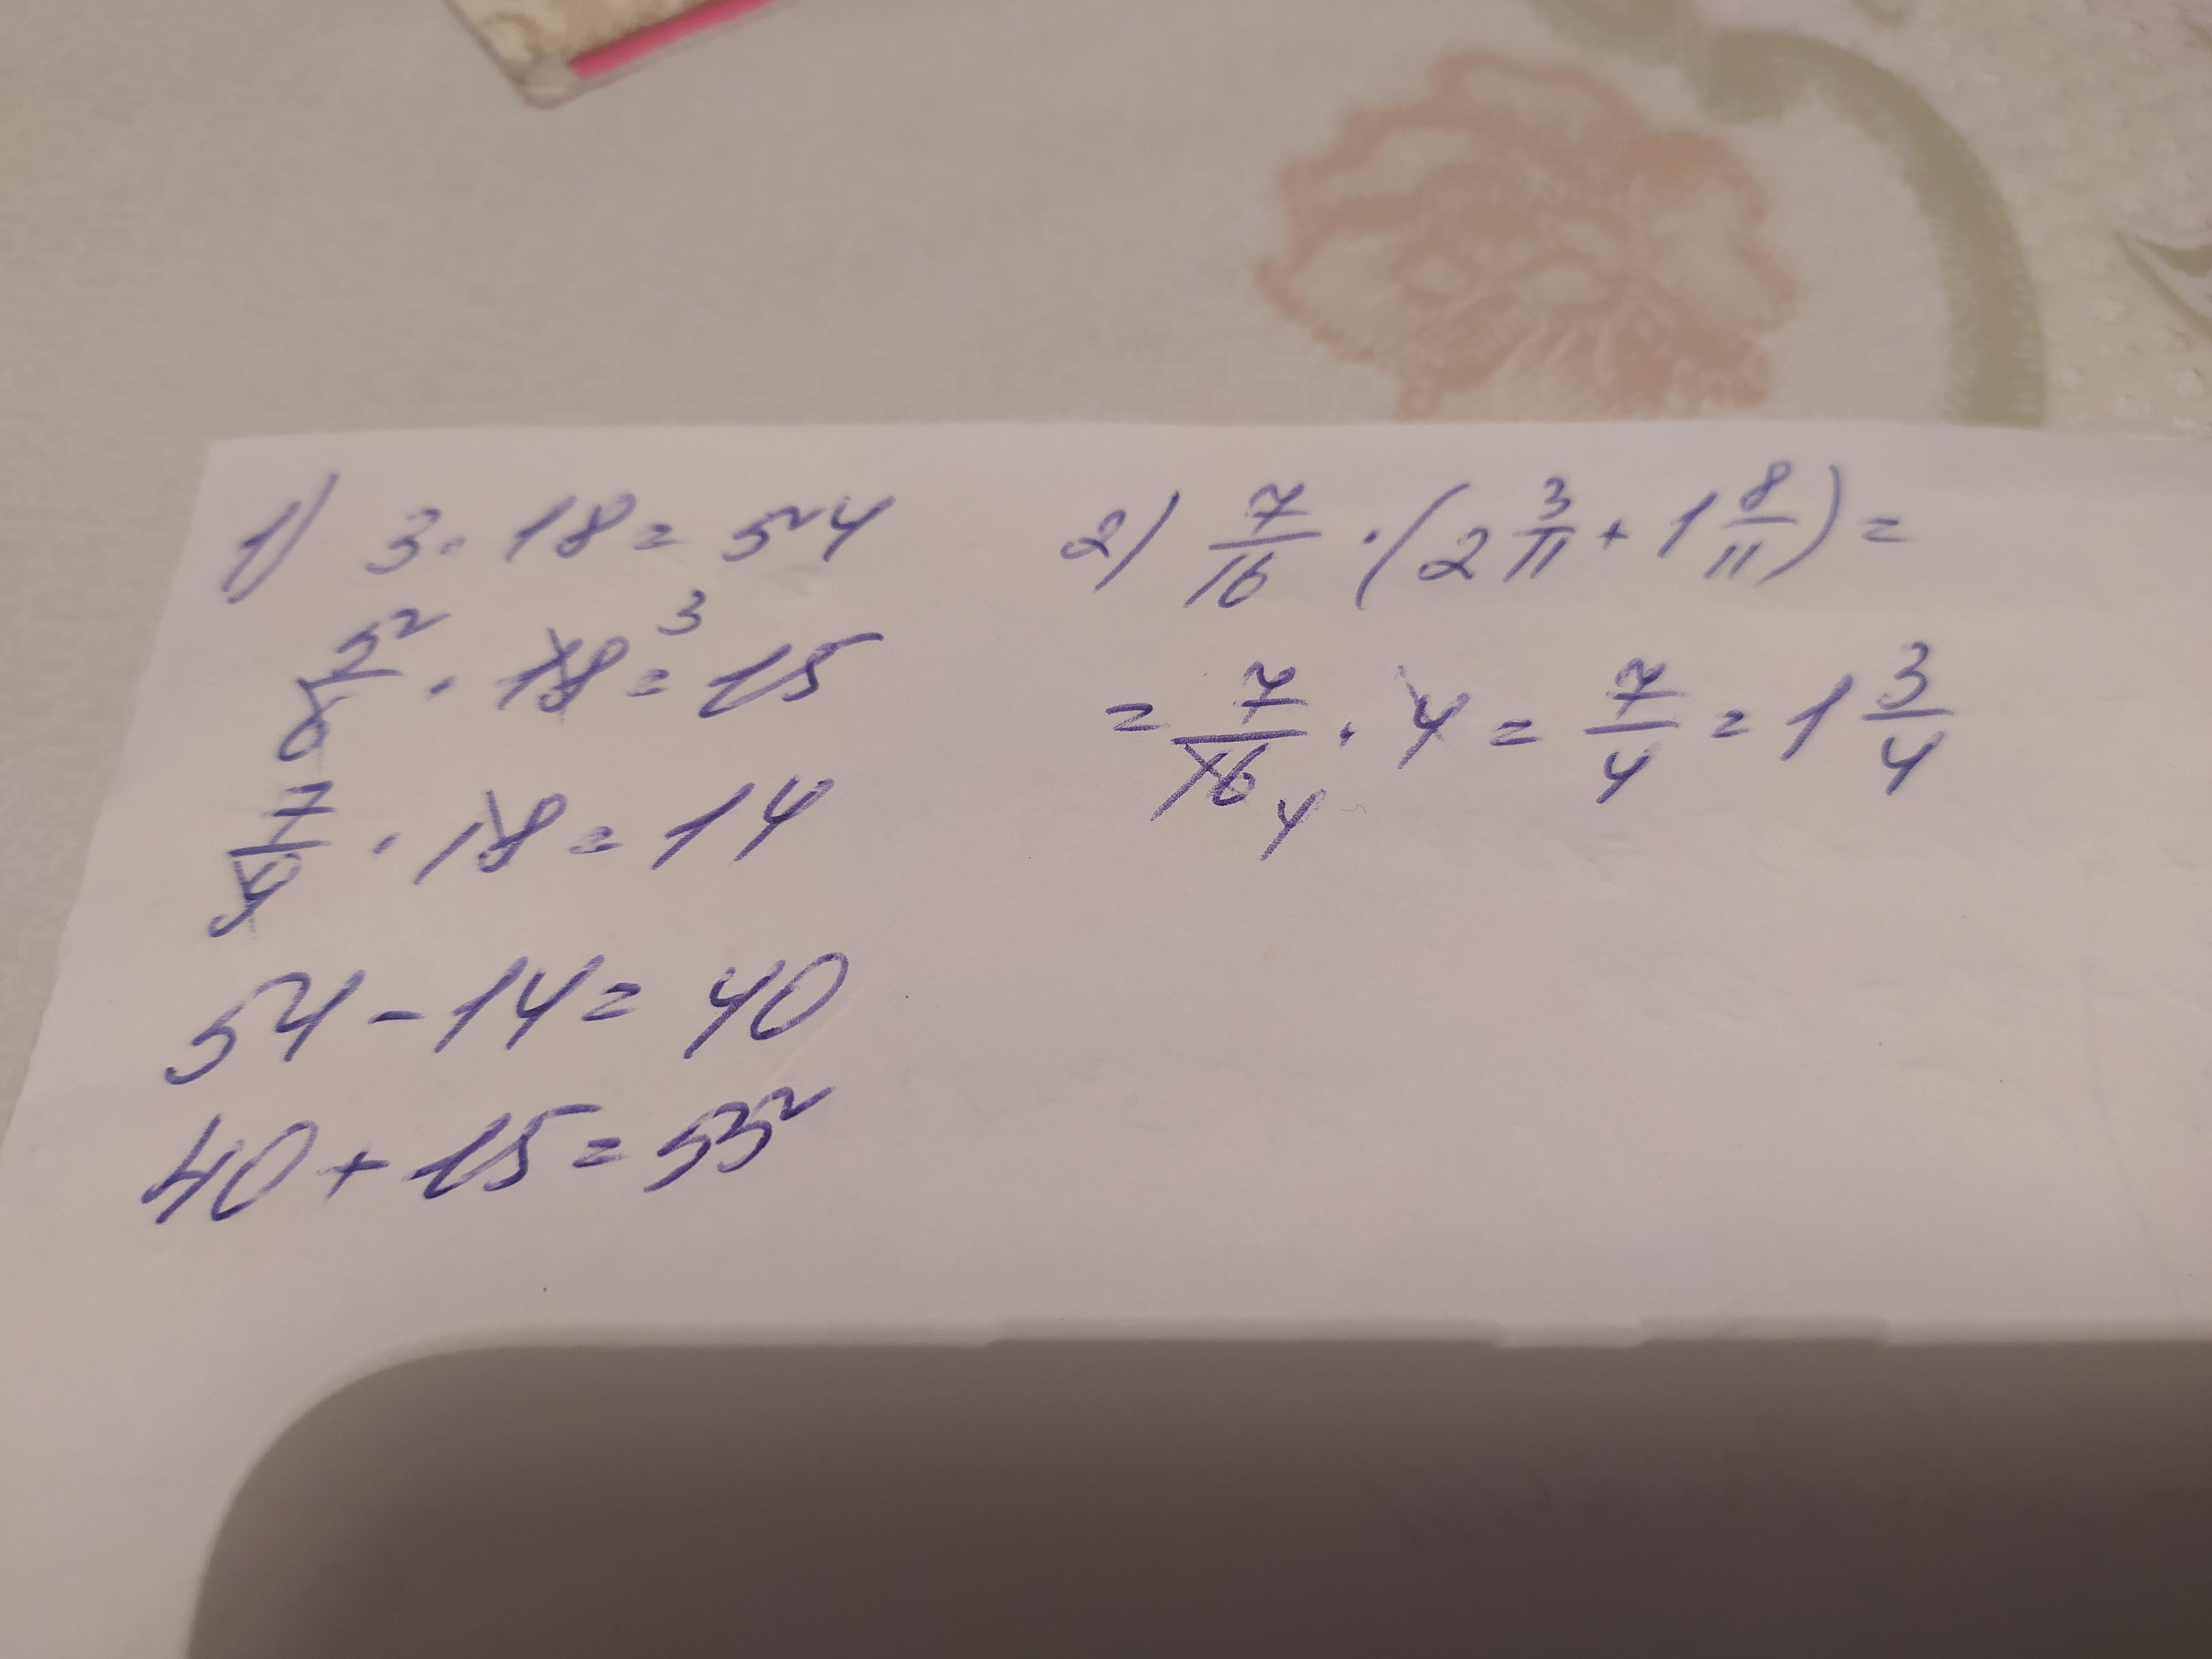 1) 3 · 18 = 54
5/6 · 18 3 = 15
7/9 · 18 = 14
54 - 14 = 40
40 + 15 = 55
2) 7/16 · (2 3/11 + 1 8/11) =
= 7/16 4 · 4 = 7/4 = 1 3/4